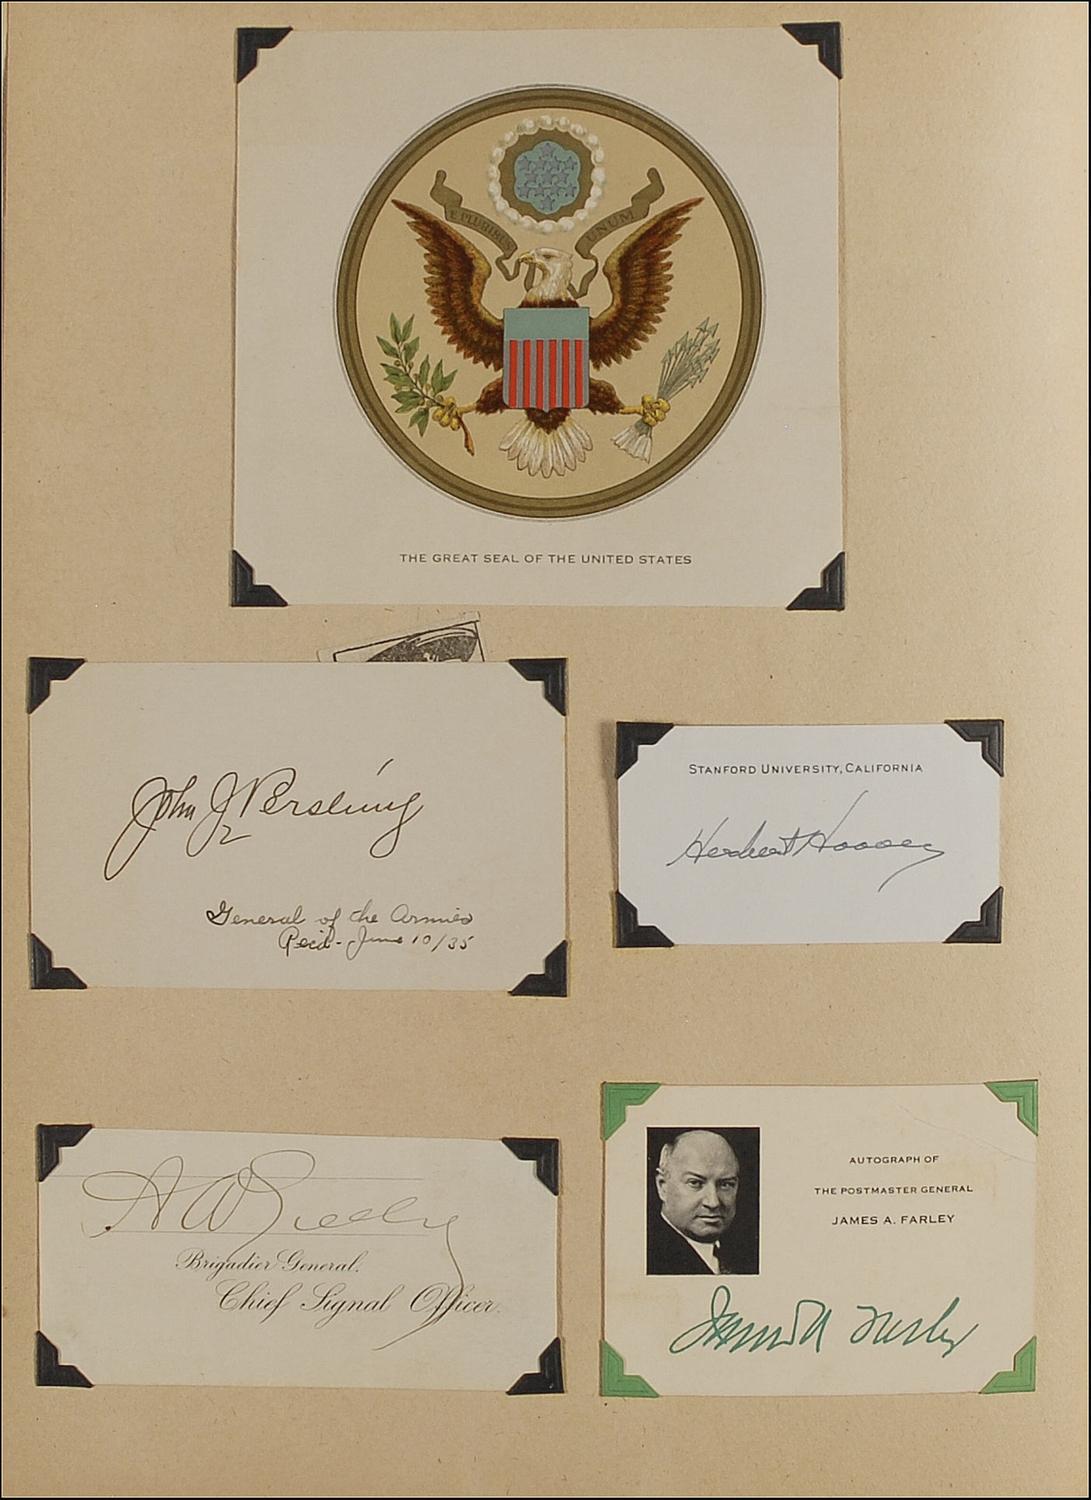 E PLURIBUS UNUM
THE GREAT SEAL OF THE UNITED STATES
John J Pershing
General of the Armies
Recd- June 10/35
STANFORD UNIVERSITY, CALIFORNIA
Herbert Hoover
A W Greely
Brigadier General.
Chief Signal Officer.
AUTOGRAPH OF
THE POSTMASTER GENERAL
JAMES A. FARLEY
James A Farley